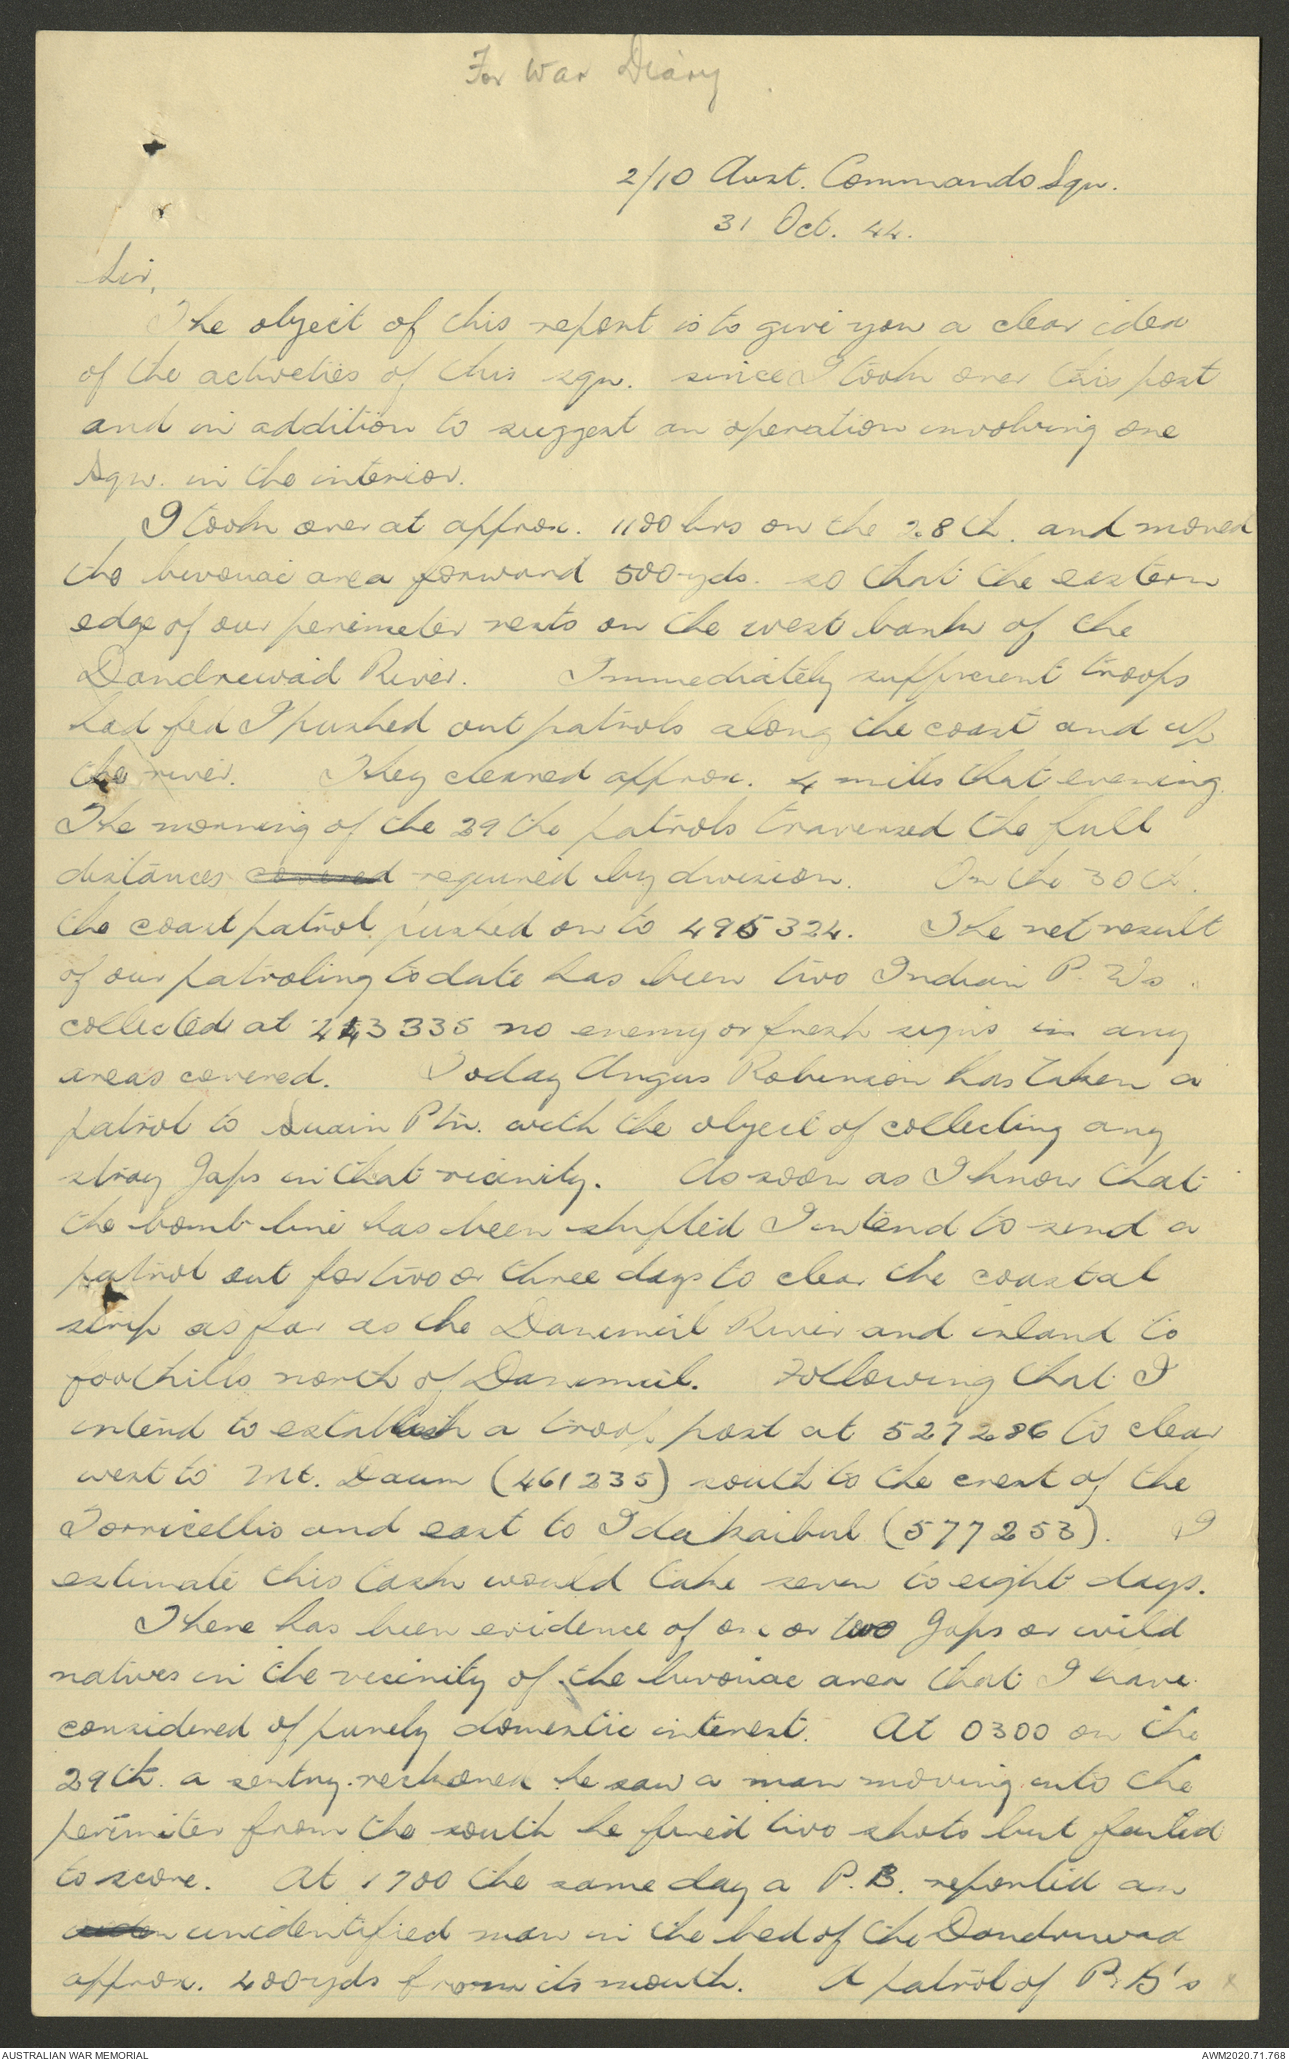 For War Diary
2/10 Aust. Commando Sqn.
31 Oct. 44.
Sir,
The object of this report is to give you a clear idea
of the activeties of this sqn. since I took over this post
and in addition to suggest an operation involving one
Sqn. in the interior.
I took over at approx. 1100 hrs on the 28th. and moved
the bivouac area forward 500 yds. so that the eastern
edge of our perimeter rests on the west bank of the
Dandriwad River. Immediately sufficient troops
had fed I pushed out patrols along the coast and up
the river. They cleared approx. 4 miles that evening.
The morning of the 29th the patrols traversed the full
distances covered required by division. On the 30th.
the coast patrol pushed on to 495324. The net result
of our patroling to date has been two Indian P. Ws.
collected at 443335 no enemy or fresh signs in any
areas covered. Today Angus Robinson has taken a
patrol to Suain Ptn. with the object of collecting any
stray Japs in that vicinity. As soon as I know that
the bomb-line has been shifted I intend to send a
patrol out for two or three days to clear the coastal
strip as far as the Danimul River and inland to
foothills north of Danimul. Following that I
intend to establish a troop post at 527286 to clear
west to Mt. Daum (461235) south to the crest of the
Torricellis and east to Idakaibul (577253). I
estimate this task would take seven to eight days.
There has been evidence of one or two Japs or wild
natives in the vicinity of the bivouac area that I have
considered of purely domestic interest. At 0300 on the
29th. a sentry reckoned he saw a man moving into the
perimiter from the south he fired two shots but failed
to score. At 1700 the same day a P.B. reported an
unidentified man in the bed of the Dandriwad
approx. 400 yds from its mouth. A patrol of P.B's
AUSTRALIAN WAR MEMORIAL
AWM2020.71.768